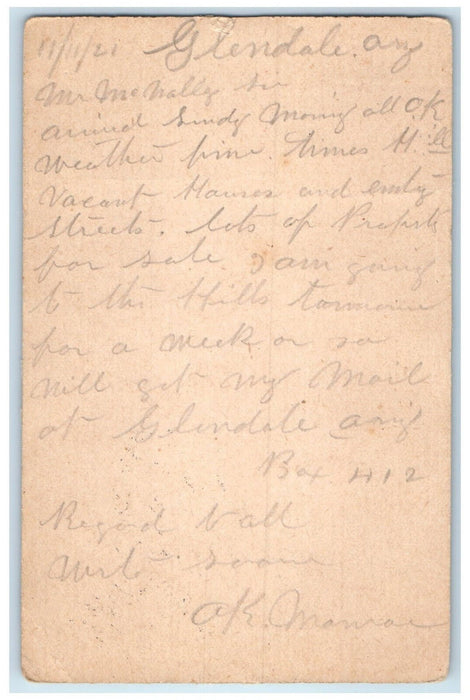 11/1/21 Glendale. arz
Mr McNally Sir
arived Sundy Morning all OK
Weather fine. times H ell
Vacant Houses and emty
Streets. lots of Propirt
for sale I am going
to the Hills tomorrow
for a week or so
will get my Mail
at Glendale ariz
Box 412
Regard to all
Write soone
OK. Monroe